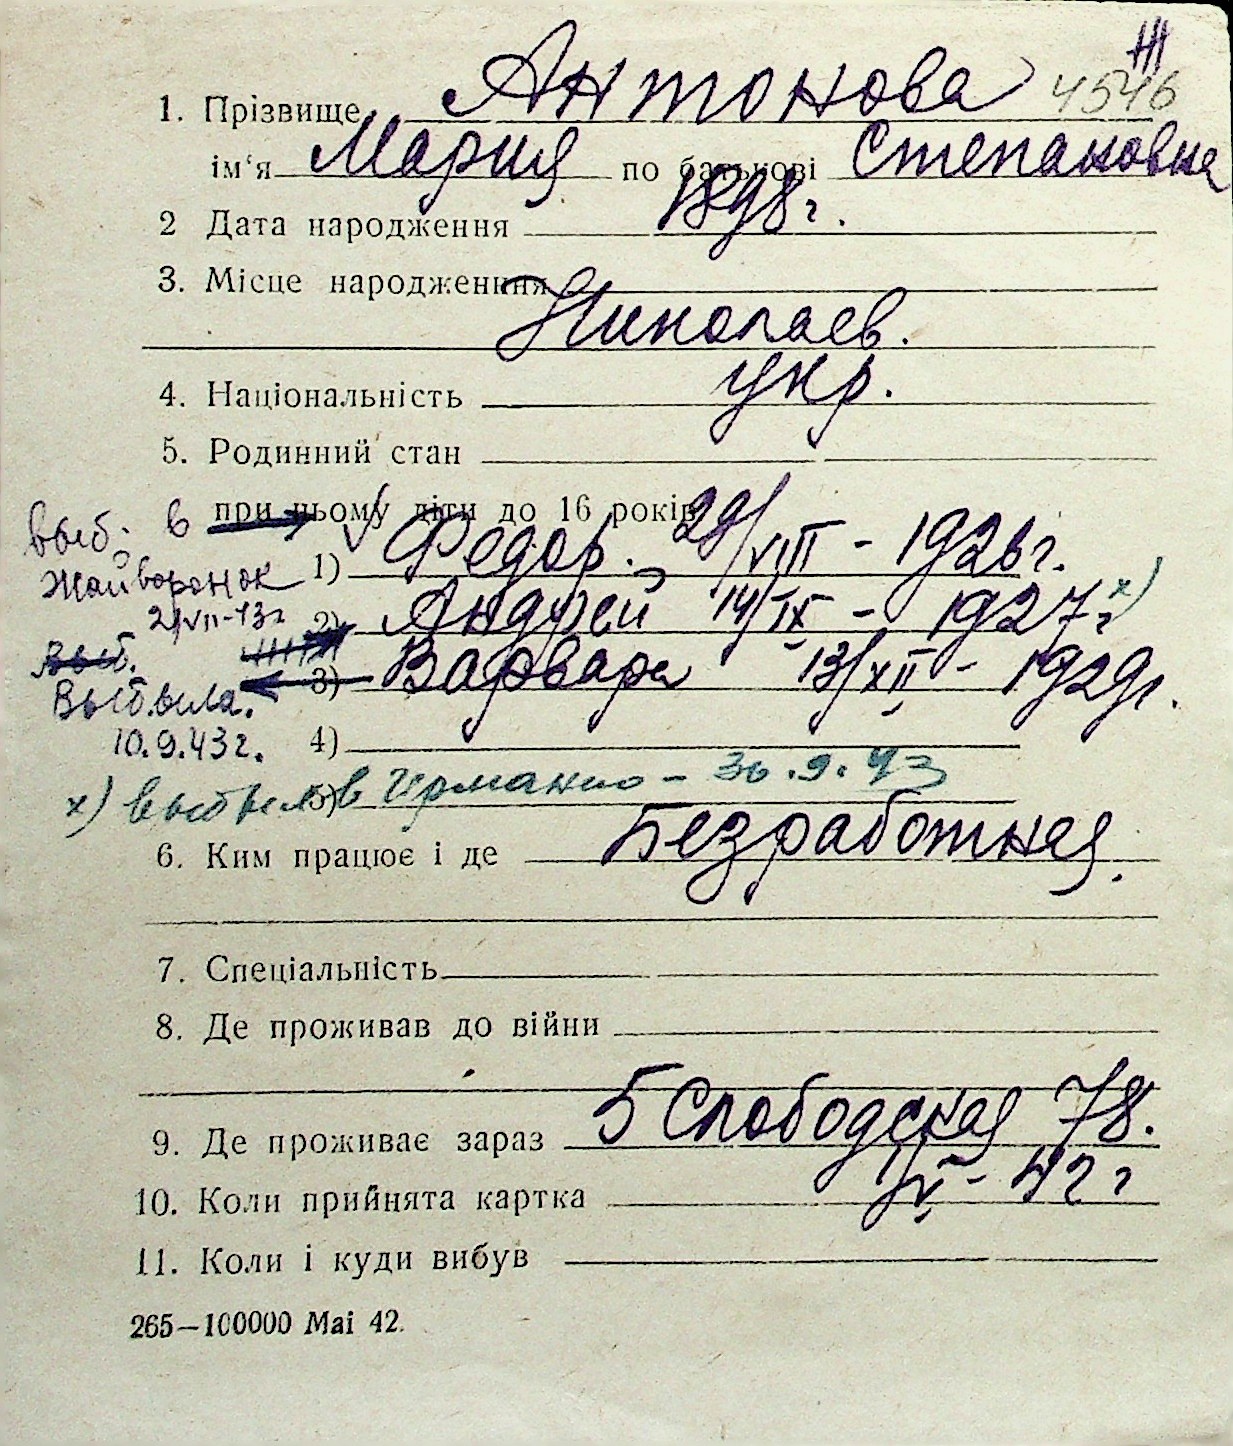 III
1. Прізвище Антонова 4546
ім‘я Мария по батькові Степановна
2 Дата народження 1898 г.
3. Місце народженння
Николаев.
4. Національність укр.
5. Родинний стан
выб. в при ньому діти до 16 років
Жайворонок 1) Федор. 29/VIII - 1926 г.
2/VII-43г 2) Андрей 14/IX - 1927 г x)
выб. 3) Варвара 13/XII - 1929 г.
Выбыла.
10.9.43 г. 4)
x) выбыл в Германию - 30.9.43 5)
6. Ким працює і де Безработная.
7. Спеціальність
8. Де проживав до війни
9. Де проживає зараз 5 Слободская 78.
10. Коли прийнята картка 1/V - 42 г
11. Коли і куди вибув
265—100000 Mai 42.